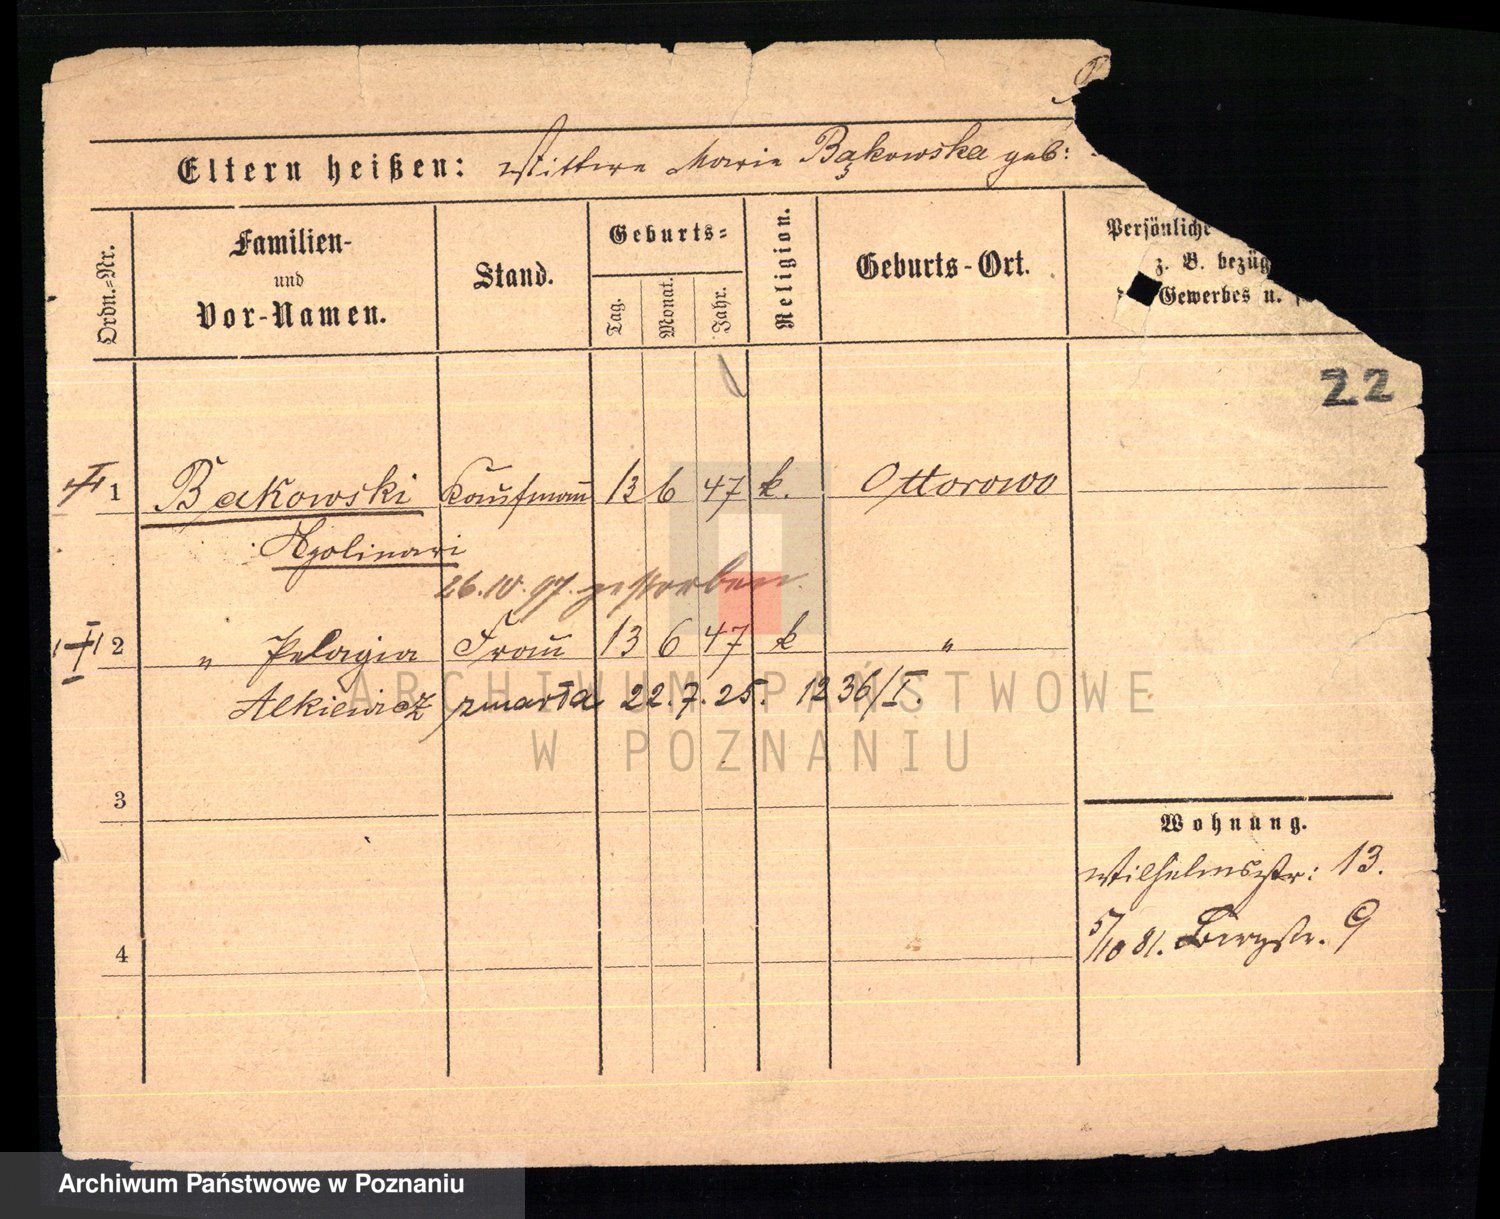 Eltern heißen: Wittwe Marie Bąkowska geb:
Ordn.-Nr.
Familien-
und
Vor-Namen.
Stand.
Geburts-
Tag.
Monat.
Jahr.
Religion.
Geburts-Ort.
Persönliche
z. B. bezüg
Gewerbes u.
22
1 Bąkowski Kaufmann 13 6 47 k. Ottorowo
Apolinari
26.10.97. gestorben.
2 " Pelagia Frau 13 6 47 k "
Alkiewicz zmarła 22.7.25. 1236/I.
ARCHIWUM PAŃSTWOWE
W POZNANIU
3
Wohnung.
Wilhelmsstr: 13.
5/10 81. Bergstr. 9
4
Archiwum Państwowe w Poznaniu